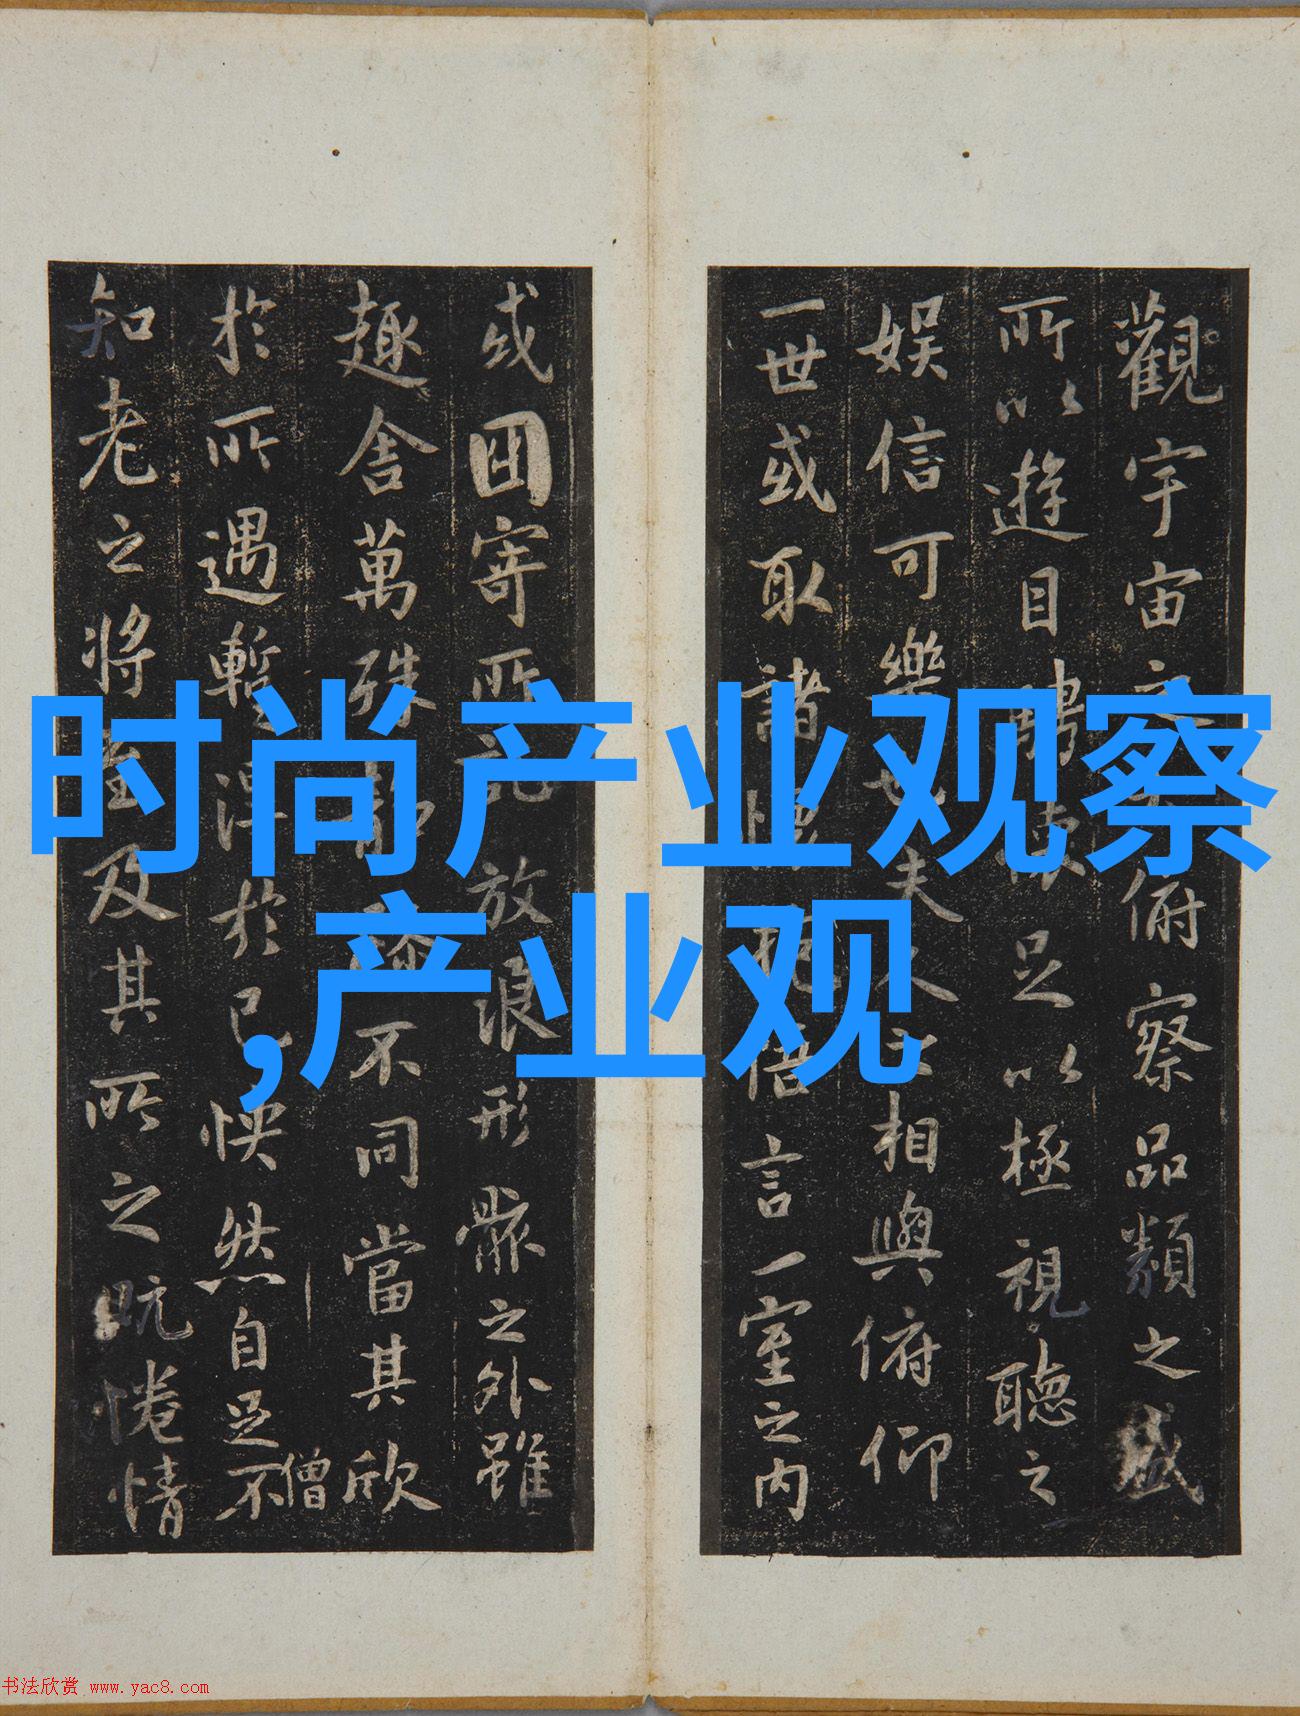 時尚产业观察
,产业观
觀宇宙之俯察品類之盛
所以遊目騁懷足以極視聽之
娛信可樂也夫人之相與俯仰
一世或取諸懷抱悟言一室之内
或因寄所託放浪形骸之外雖
趣舍萬殊靜躁不同當其欣
於所遇暫得於己快然自足不
僧
知老之將至及其所之既惓情
书法欣赏 www.yac8.com